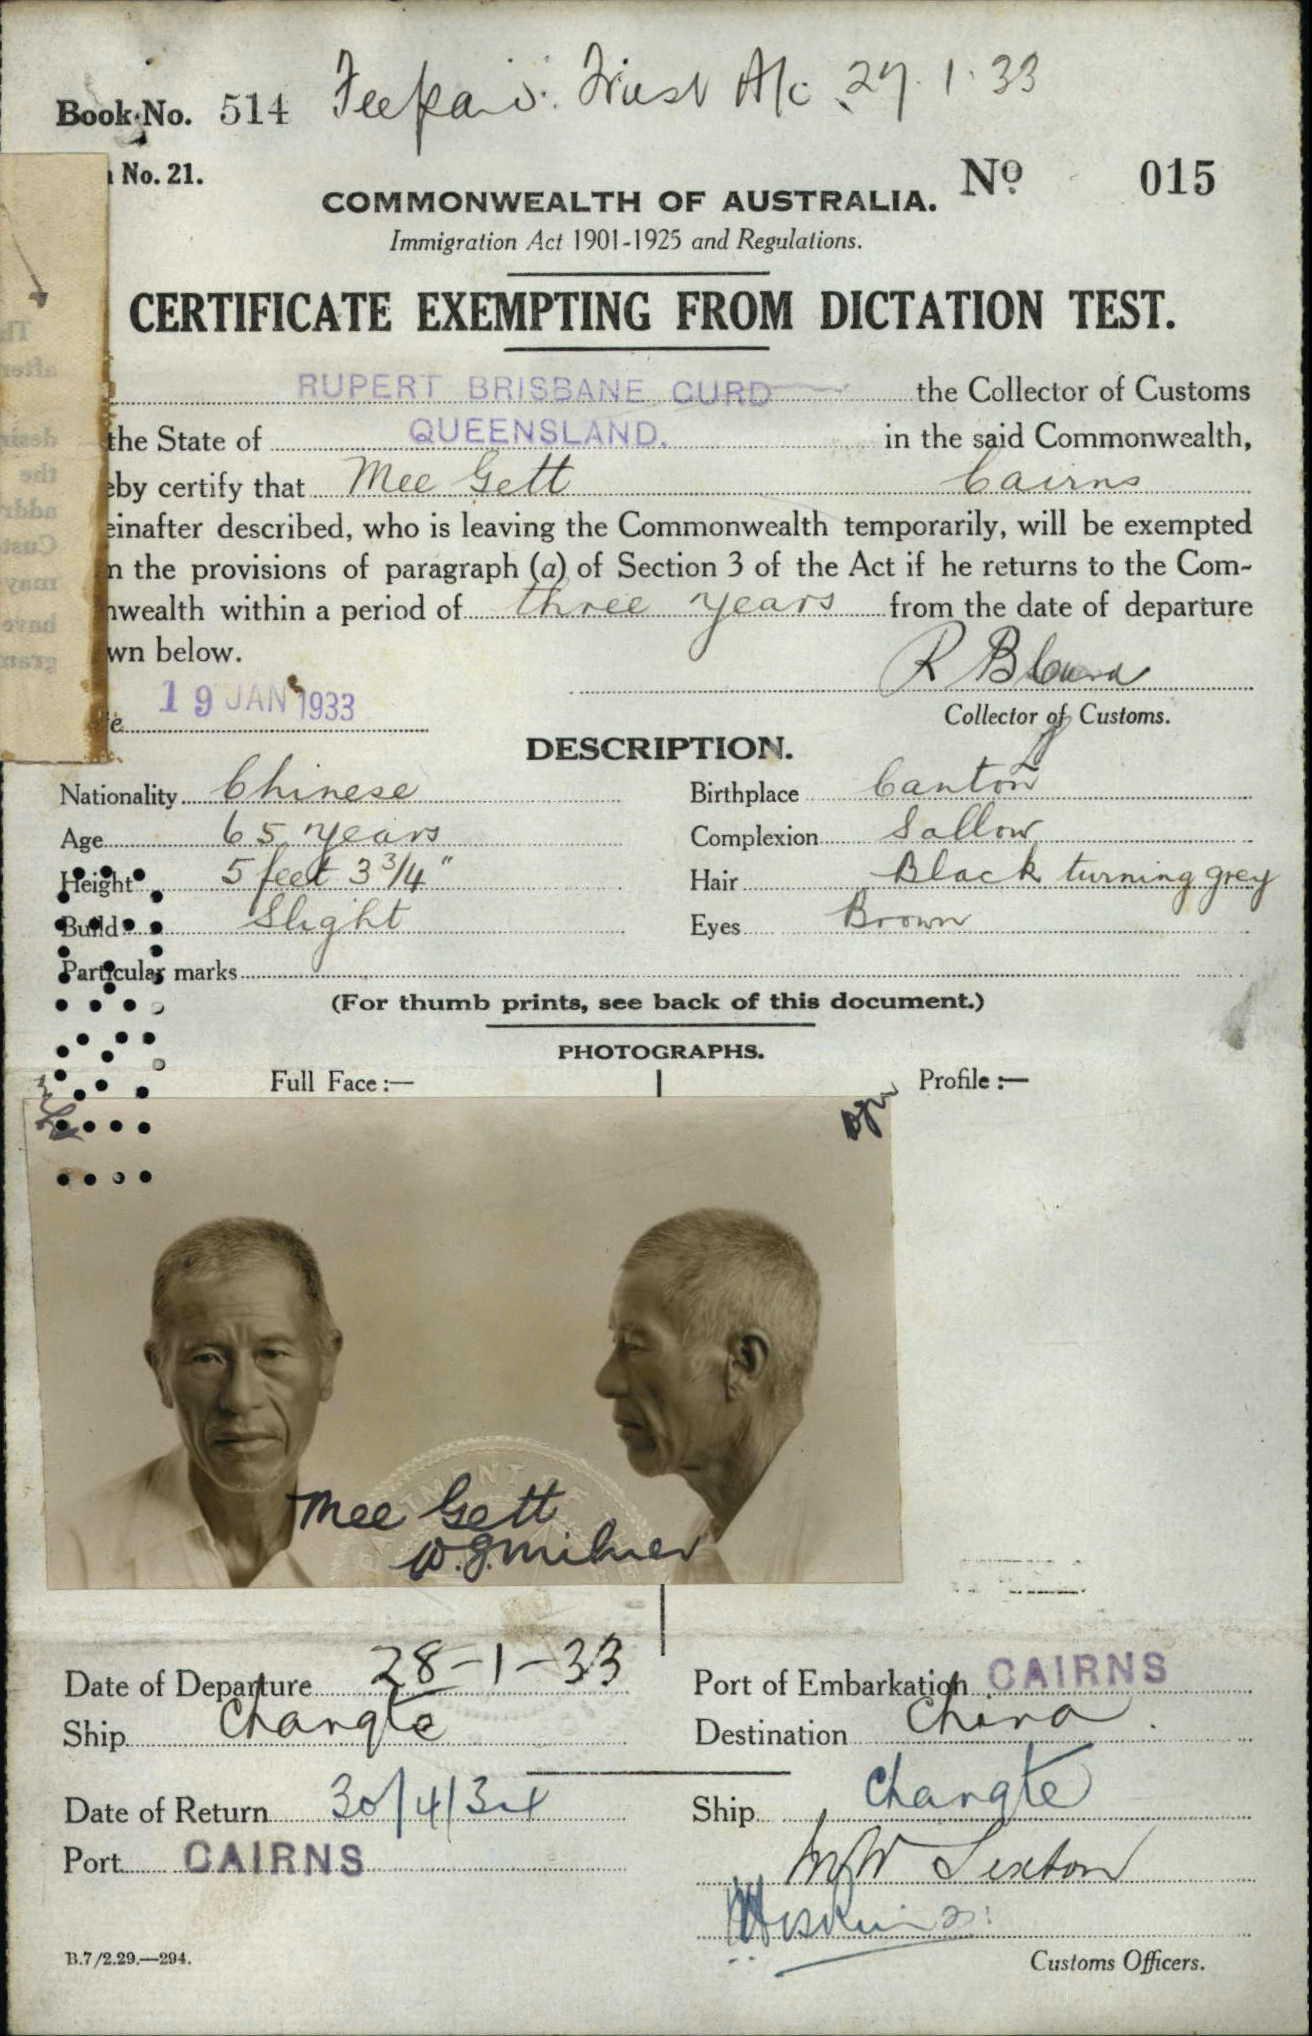 Feepaid. Trust A/c 27.1.33
Book No. 514
No. 21.
No. 015
COMMONWEALTH OF AUSTRALIA.
Immigration Act 1901-1925 and Regulations.
CERTIFICATE EXEMPTING FROM DICTATION TEST.
RUPERT BRISBANE CURD the Collector of Customs
the State of QUEENSLAND. in the said Commonwealth,
eby certify that Mee Gett Cairns
einafter described, who is leaving the Commonwealth temporarily, will be exempted
n the provisions of paragraph (a) of Section 3 of the Act if he returns to the Com-
nwealth within a period of three years from the date of departure
wn below.
R B Curd
19 JAN 1933
e
Collector of Customs.
DESCRIPTION.
Nationality Chinese Birthplace Canton
Age 65 years Complexion Sallow
Height 5 feet 3 3/4" Hair Black turning grey
Build Slight Eyes Brown
Particular marks
(For thumb prints, see back of this document.)
PHOTOGRAPHS.
Full Face:— Profile:—
Mee Gett
W.J. Milner
Date of Departure 28-1-33 Port of Embarkation CAIRNS
Ship Changte Destination China.
Date of Return 30/4/34 Ship Changte
Port CAIRNS
Sexton
B.7/2.29.—294.
Customs Officers.